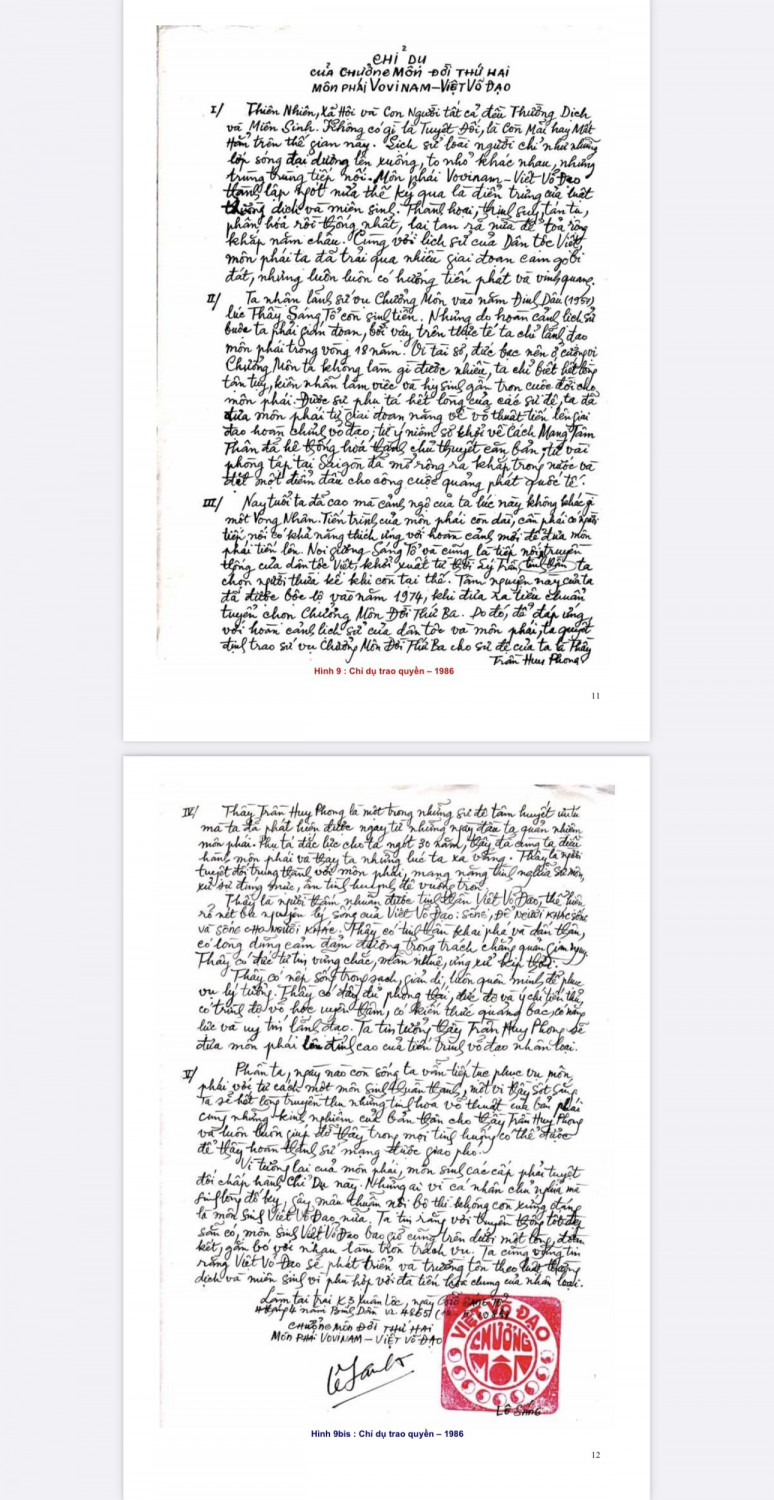 CHỈ DỤ
CỦA CHƯỞNG MÔN ĐỜI THỨ HAI
MÔN PHÁI VOVINAM – VIỆT VÕ ĐẠO
I/ Thiên Nhiên, Xã Hội và Con Người tất cả đều Thường Dịch
và Miên Sinh. Không có gì là Tuyệt Đối, là Còn Mãi hay Mất
Hẳn trên thế gian này. Lịch sử loài người chỉ như những
lớp sóng đại dương lên xuống, to nhỏ khác nhau, nhưng
trùng trùng tiếp nối. Môn phái Vovinam – Việt Võ Đạo
thành lập ngót nửa thế kỷ qua là điển trưng của luật
thường dịch và miên sinh. Thành hoại, thịnh suy, tán tụ,
phân hóa rồi thống nhất, lại tan rã nữa để tỏa rộng
khắp năm châu. Cùng với lịch sử của Dân tộc Việt,
môn phái ta đã trải qua nhiều giai đoạn cam go bi
đát, nhưng luôn luôn có hướng tiến phát và vinh quang.
II/ Ta nhận lãnh sứ vụ Chưởng Môn vào năm Đinh Dậu (1957)
lúc Thầy Sáng Tổ còn sinh tiền. Nhưng do hoàn cảnh lịch sử
buộc ta phải gián đoạn, bởi vậy trên thực tế ta chỉ lãnh đạo
môn phái trong vòng 18 năm. Vì tài sơ, đức bạc nên ở cương vị
Chưởng Môn ta không làm gì được nhiều, ta chỉ biết hết lòng
tận tụy, kiên nhẫn làm việc và hy sinh gần trọn cuộc đời cho
môn phái. Được sự phụ tá hết lòng của các sư đệ, ta đã
đưa môn phái từ giai đoạn nặng về võ thuật tiến lên giai
đoạn hoàn chỉnh võ đạo; từ ý niệm sơ khởi về Cách Mạng Tâm
Thân đã hệ thống hóa thành chủ thuyết căn bản; từ vài
phòng tập tại Saigon đã mở rộng ra khắp trong nước và
đặt một điểm đầu cho công cuộc quảng phát quốc tế.
III/ Nay tuổi ta đã cao mà cảnh ngộ của ta lúc này không khác gì
một Vong Nhân. Tiến trình của môn phái còn dài, cần phải có người
tiếp nối có khả năng thích ứng với hoàn cảnh mới để đưa môn
phái tiến lên. Noi gương Sáng Tổ và cũng là tiếp nối truyền
thống của dân tộc Việt, khởi xuất từ thời Lý Trần, ta
chọn người thừa kế khi còn tại thế. Tâm nguyện này của ta
đã được bộc lộ vào năm 1974, khi đưa ra tiêu chuẩn
tuyển chọn Chưởng Môn Đời Thứ Ba. Do đó, để đáp ứng
với hoàn cảnh lịch sử của dân tộc và môn phái, ta quyết
định trao sứ vụ Chưởng Môn Đời Thứ Ba cho sư đệ của ta là Thầy
Trần Huy Phong
Hình 9 : Chỉ dụ trao quyền – 1986
11
IV/ Thầy Trần Huy Phong là một trong những sư đệ tâm huyết ưu tú
mà ta đã phát hiện được ngay từ những ngày đầu ta quản nhiệm
môn phái. Phụ tá đắc lực cho ta ngót 30 năm, thầy đã cùng ta điều
hành môn phái và thay ta những lúc ta xa vắng. Thầy là người
tuyệt đối trung thành với môn phái, mang nặng tình nghĩa sư môn,
xử sự đúng mức, ân tình huynh đệ vuông tròn.
Thầy là người thấm nhuần được tinh thần Việt Võ Đạo, thể hiện
rõ nét ba nguyên lý sống của Việt Võ Đạo: SỐNG, ĐỂ NGƯỜI KHÁC SỐNG
VÀ SỐNG CHO NGƯỜI KHÁC. Thầy có tinh thần khai phá và dấn thân,
có lòng dũng cảm đảm đương trọng trách chẳng quản gian nguy.
Thầy có đức tự tin vững chắc, mẫn nhuệ, ứng xử kịp thời.
Thầy có nếp sống trong sạch, giản dị, luôn quên mình để phục
vụ lý tưởng. Thầy có đầy đủ phong thái, đức độ và ý chí tiến thủ,
có trình độ võ học uyên thâm, có kiến thức quảng bác, có năng
lực và uy tín lãnh đạo. Ta tin tưởng thầy Trần Huy Phong sẽ
đưa môn phái lên đỉnh cao của tiến trình võ đạo nhân loại.
V/ Phần ta, ngày nào còn sống ta vẫn tiếp tục phục vụ môn
phái với tư cách một môn sinh thuần thành, một vị thầy sốt sắng.
Ta sẽ hết lòng truyền thụ những tinh hoa võ thuật của bản phái
cùng những kinh nghiệm của bản thân cho thầy Trần Huy Phong
và luôn luôn giúp đỡ thầy trong mọi tình huống có thể được
để thầy hoàn thành sứ mạng được giao phó.
Vì tương lai của môn phái, môn sinh các cấp phải tuyệt
đối chấp hành Chỉ Dụ này. Những ai vì cá nhân chủ nghĩa mà
sinh lòng đố kỵ, gây mâu thuẫn nội bộ thì không còn xứng đáng
là môn sinh Việt Võ Đạo nữa. Ta tin rằng với truyền thống tốt đẹp
sẵn có, môn sinh Việt Võ Đạo bao giờ cũng trên dưới một lòng, đoàn
kết, gắn bó với nhau làm tròn trách vụ. Ta cũng vững tin
rằng Việt Võ Đạo sẽ phát triển và trường tồn theo luật thường
dịch và miên sinh vì phù hợp với đà tiến hóa chung của nhân loại.
Làm tại trại K3 Xuân Lộc, ngày Giỗ
tháng 4 năm Bính Dần VL 4865
CHƯỞNG MÔN ĐỜI THỨ HAI
MÔN PHÁI VOVINAM – VIỆT VÕ ĐẠO
VIỆT VÕ ĐẠO
CHƯỞNG
MÔN
LÊ SÁNG
Hình 9bis : Chỉ dụ trao quyền – 1986
12